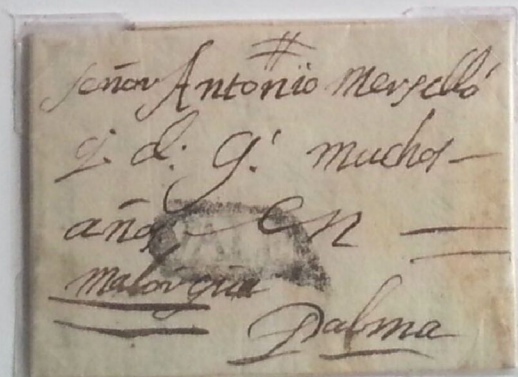 #
señor Antonio Mersello
q. d. g. muchos
años En
malorqua
Palma